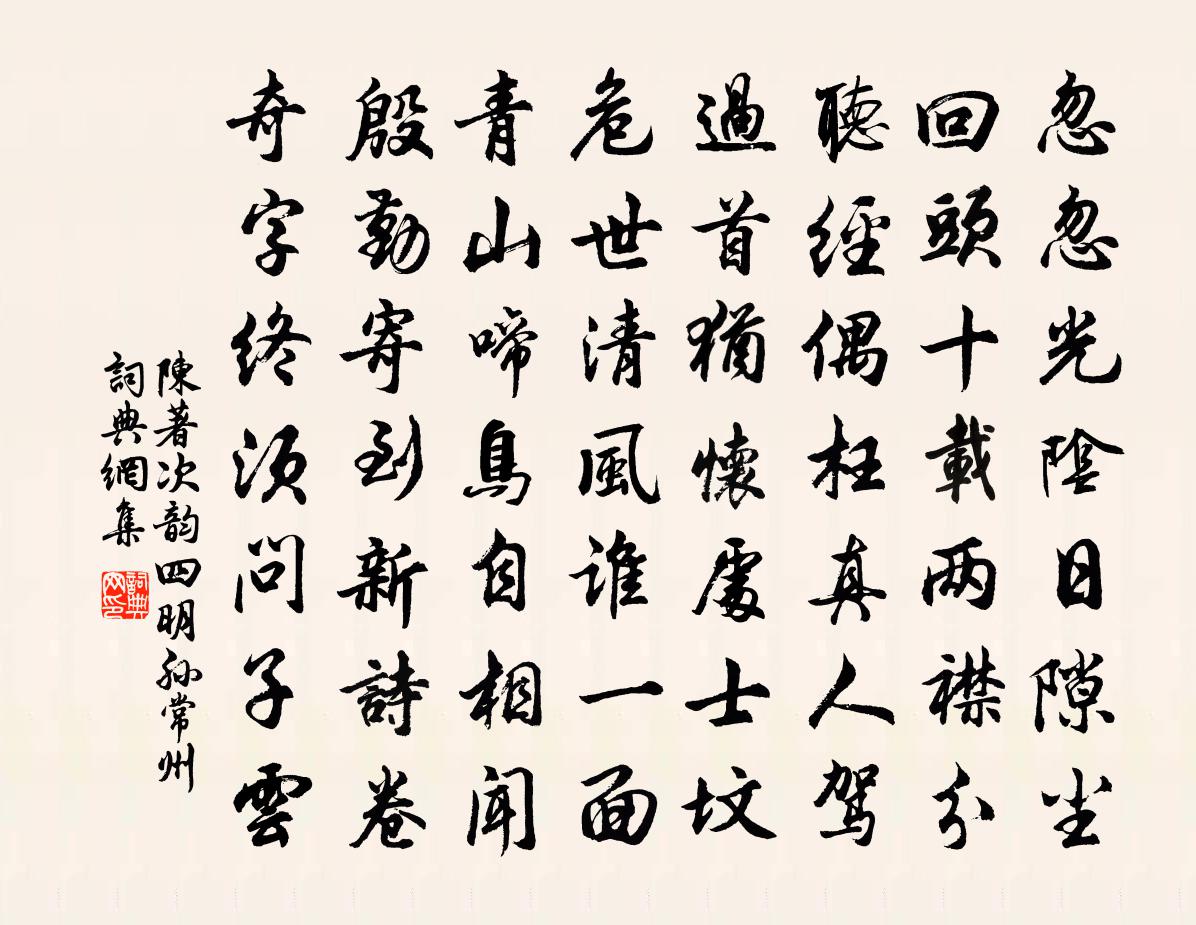 忽忽光陰日隙尘
回頭十載两襟分
聽經偶枉真人駕
過首猶懷處士坟
危世清風誰一面
青山啼鳥自相聞
殷勤寄到新詩卷
奇字终須問子雲
陳著次韵四明孙常州
詞典網集
詞典网印